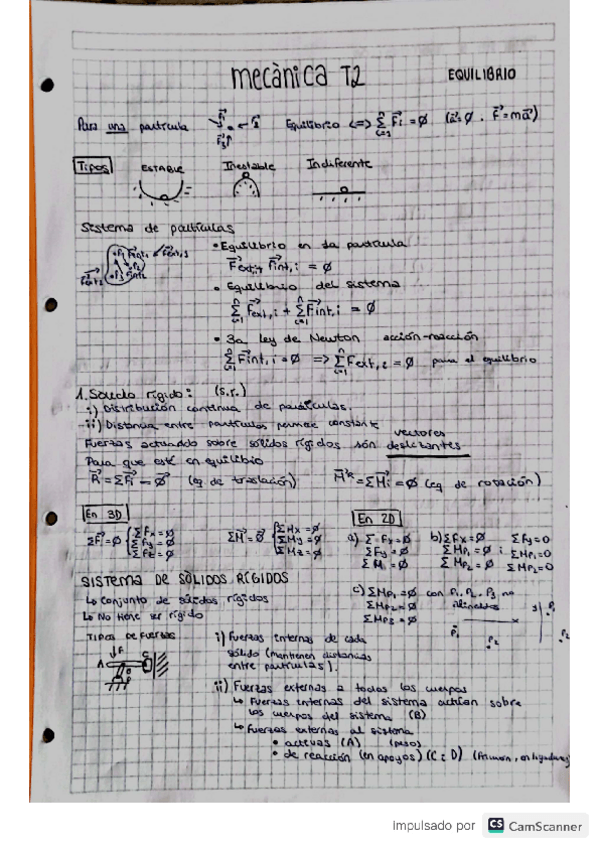 mecànica T2 EQUILIBRIO
Para una partícula F₁ F₂ F₃ Equilibrio <=> Σ Fi = ∅ (a=∅ . F=ma)
Tipos ESTABLE Inestable Indiferente
Sistema de partículas
• Equilibrio en la partícula
Fext,i + Fint,i = ∅
• Equilibrio del sistema
Σ Fext,i + Σ Fint,i = ∅
• 3a ley de Newton acción-reacción
Σ Fint,i = ∅ => Σ Fext,i = ∅ para el equilibrio
1. Sólido rígido: (s.r.)
i) Distribución continua de partículas.
ii) Distancia entre partículas permane constante
vectores
Fuerzas actuando sobre sólidos rígidos son deslizantes
Para que esté en equilibrio
R = ΣFi = ∅ (eq de traslación) M = ΣMi = ∅ (eq de rotación)
En 3D En 2D
ΣF = ∅ ΣFx = ∅ ΣFy = ∅ ΣFz = ∅ ΣM = ∅ ΣMx = ∅ ΣMy = ∅ ΣMz = ∅
a) ΣFx = ∅ ΣFy = ∅ ΣM = ∅ b) ΣFx = ∅ ΣMP₁ = ∅ ΣMP₂ = ∅ ; ΣFy = 0 ΣMP₁ = 0 ΣMP₂ = 0
SISTEMA DE SÒLIDOS RÍGIDOS
c) ΣMP₁ = ∅ ΣMP₂ = ∅ ΣMP₃ = ∅ con P₁, P₂, P₃ no alineados
↳ Conjunto de sólidos rígidos
↳ No tiene ser rígido
P₁ P₂
TIPOS DE FUERZAS
i) Fuerzas internas de cada
sólido (mantienen distancias
entre partículas).
A F C B D
ii) Fuerzas externas a todos los cuerpos
↳ Fuerzas internas del sistema actúan sobre
los cuerpos del sistema (B)
↳ Fuerzas externas al sistema
• activas (A) (peso)
• de reacción (en apoyos) (C i D)
Impulsado por CS CamScanner